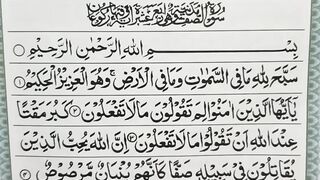 بِسْمِ اللهِ الرَّحْمٰنِ الرَّحِيْمِ
سَبَّحَ لِلّٰهِ مَا فِي السَّمٰوٰتِ وَمَا فِي الْاَرْضِ ۚ وَهُوَ الْعَزِيْزُ الْحَكِيْمُ ۝۱
يٰۤاَيُّهَا الَّذِيْنَ اٰمَنُوْا لِمَ تَقُوْلُوْنَ مَا لَا تَفْعَلُوْنَ ۝۲ كَبُرَ مَقْتًا
عِنْدَ اللهِ اَنْ تَقُوْلُوْا مَا لَا تَفْعَلُوْنَ ۝۳ اِنَّ اللهَ يُحِبُّ الَّذِيْنَ
يُقَاتِلُوْنَ فِيْ سَبِيْلِهٖ صَفًّا كَاَنَّهُمْ بُنْيَانٌ مَّرْصُوْصٌ ۝۴